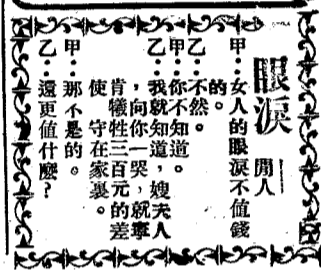 眼淚
閒人
甲：女人的眼淚不值錢
的。
乙：不然。
甲：你不知道。
乙：我就知道，嫂夫人
，向你一哭，就寧
肯犧牲三百元的差
使，守在家裏。
甲：那不是的。
乙：還更值什麼？